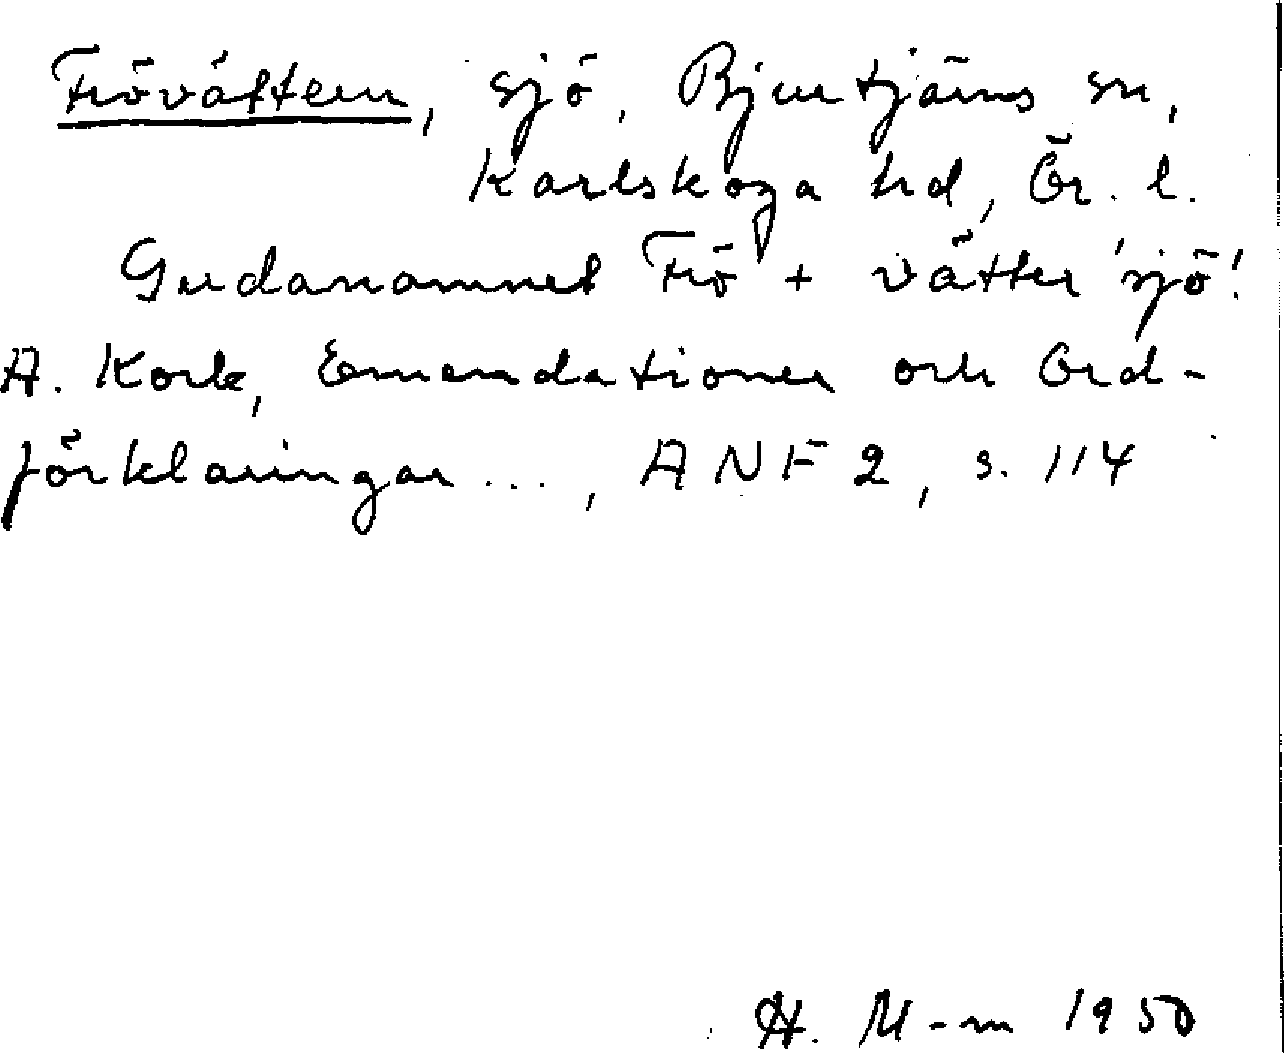 Frövättern, sjö, Bjurtjärns sn,
Karlskoga hd, Ör. l.
Gudanamnet Frö + vätter 'sjö'.
A. Kock, Emendationer och Ord-
förklaringar ..., ANF 2, s. 114
H. M-m 1950